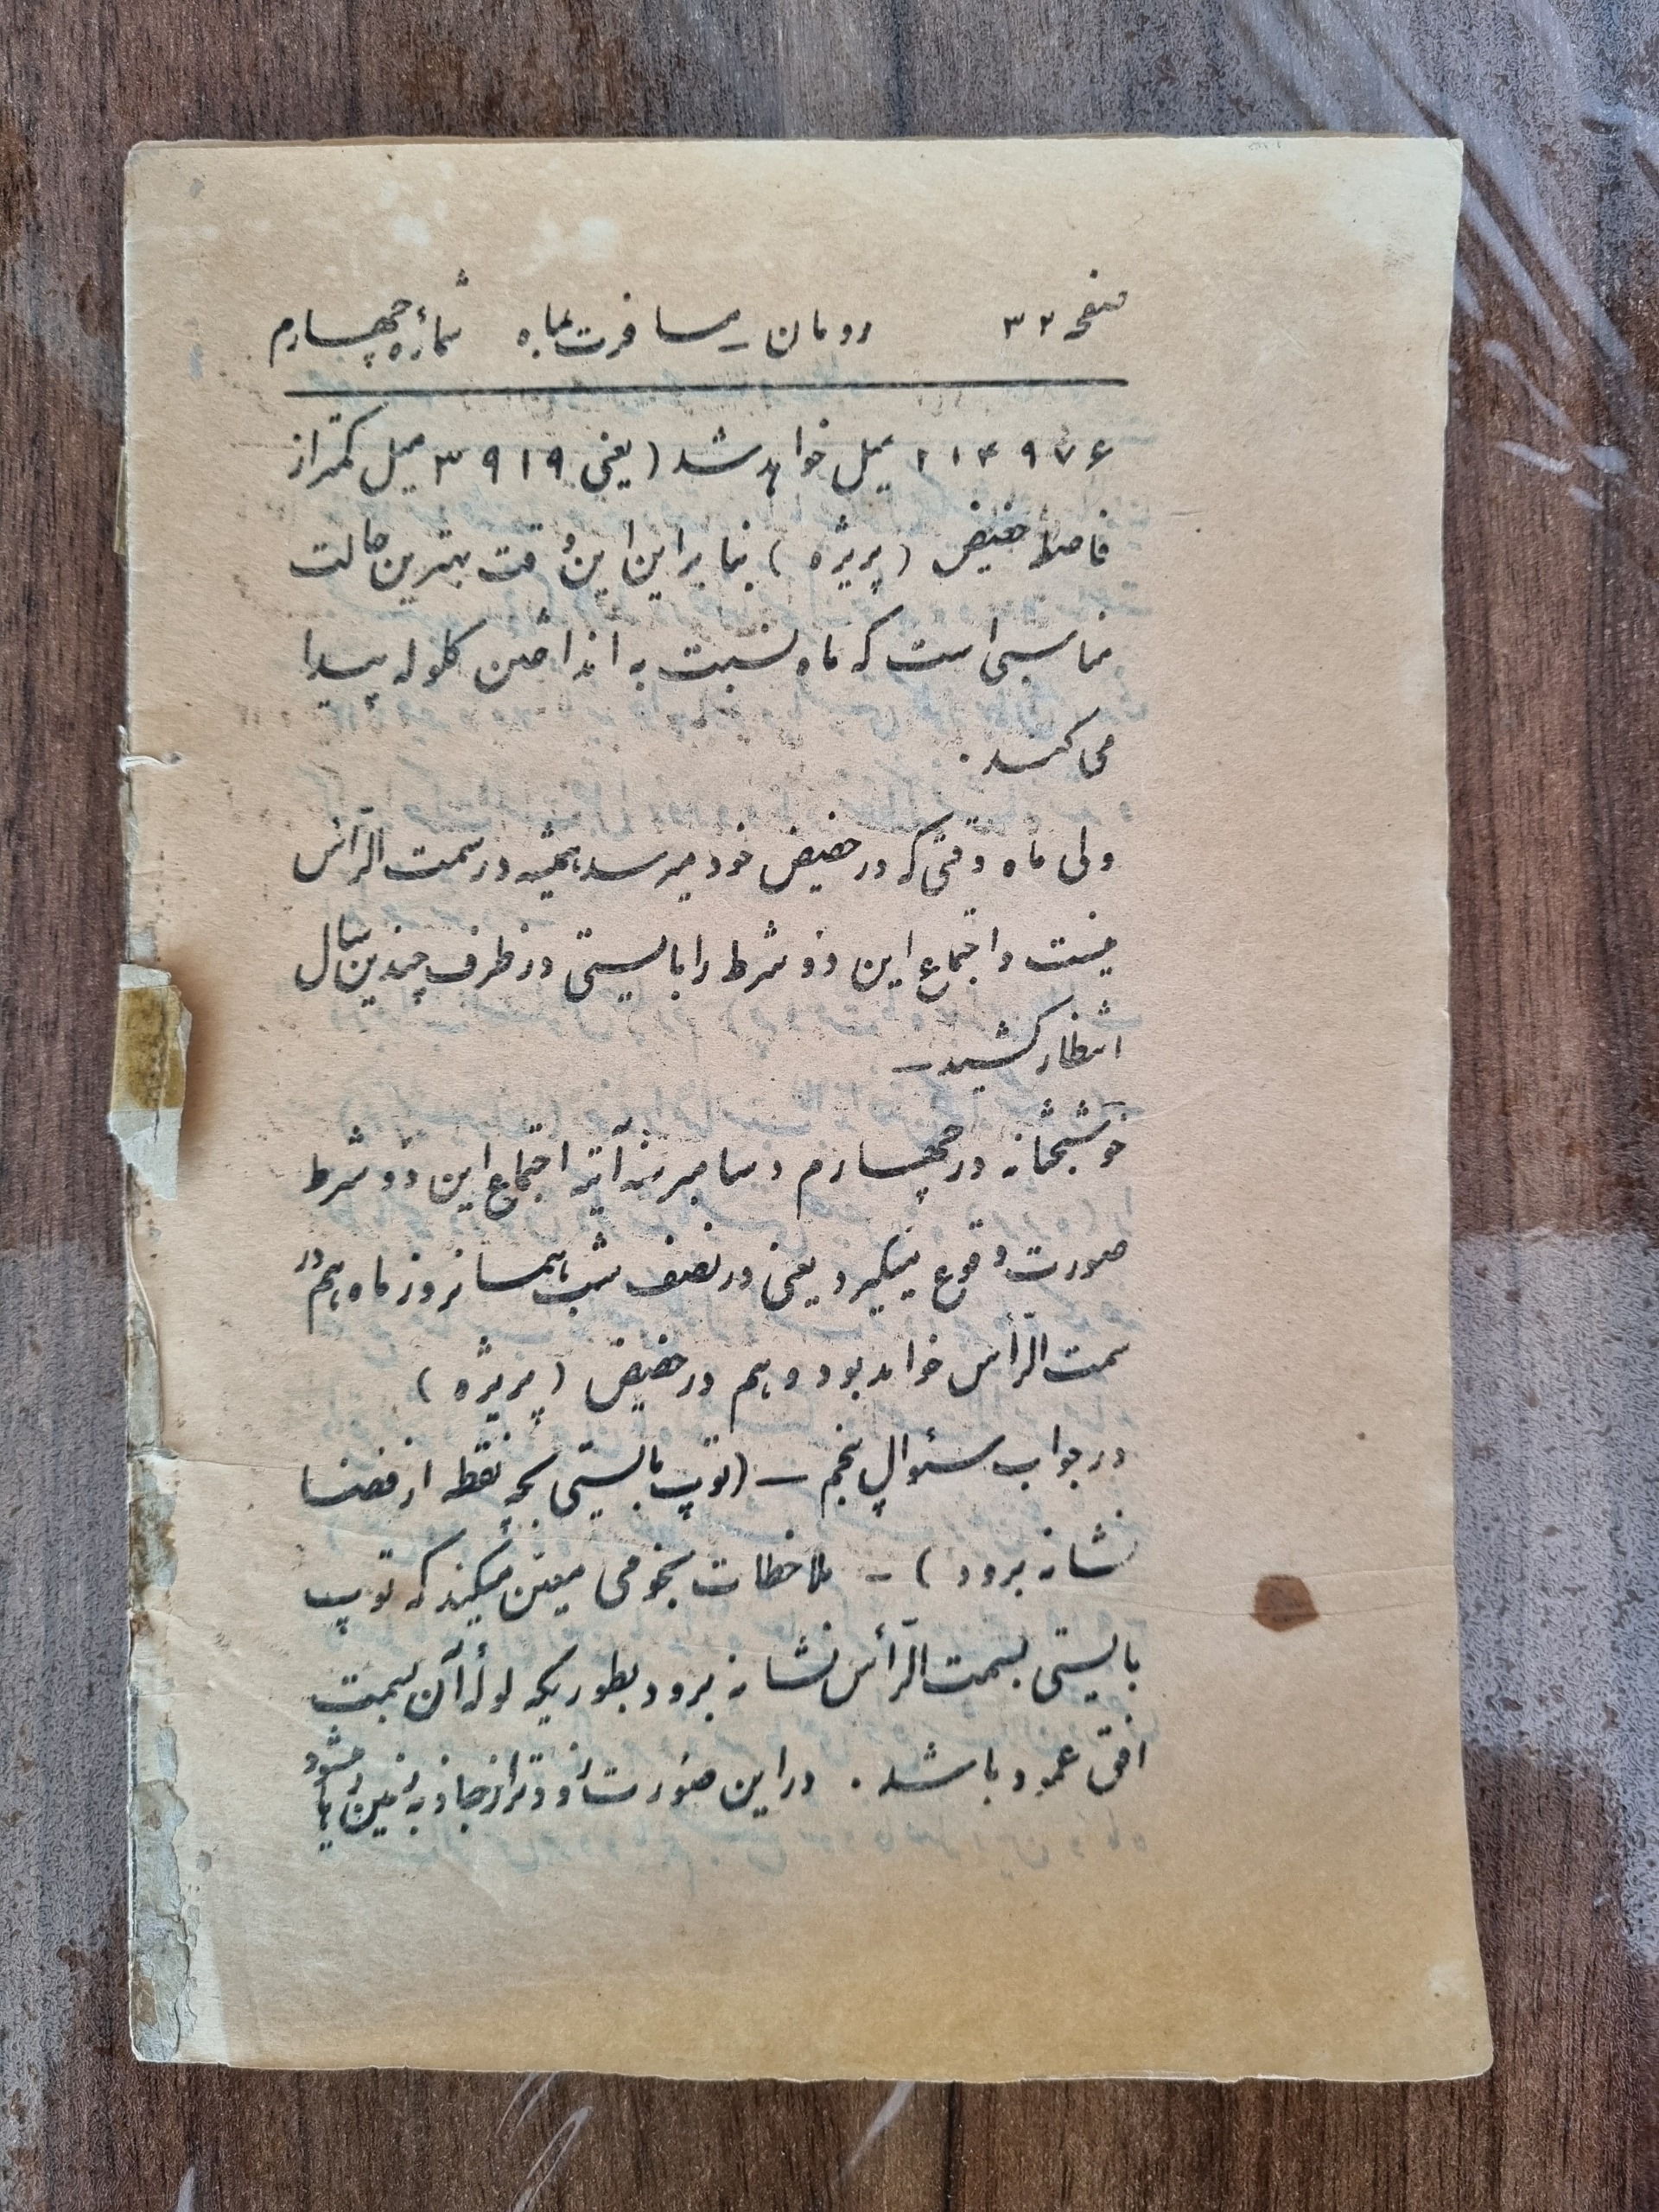 صفحه ۳۲ رومان ـ مسافرت بماه شمارهٔ چهارم
۲۱۴۹۷۶ میل خواهد شد (یعنی ۳۹۱۹ میل کمتر از
فاصلهٔ حضیض (پریژه) بنابراین این وقت بهترین حالت
مناسبی است که ماه نسبت به انداختن گلوله پیدا
می کند.
ولی ماه وقتی که در حضیض خود میرسد همیشه در سمت الرأس
نیست و اجتماع این دو شرط را بایستی در ظرف چندین سال
انتظار کشید ـ
خوشبختانه در چهارم دسامبر سنه آتیه اجتماع این دو شرط
صورت وقوع میگیرد یعنی در نصف شب همانروز ماه هم در
سمت الرأس خواهد بود و هم در حضیض (پریژه)
در جواب سئوال پنجم ـ (توپ بایستی بچه نقطه از فضا
نشانه برود) ـ ملاحظات نجومی معین میکند که توپ
بایستی بسمت الرأس نشانه برود بطوریکه لولهٔ آن بسمت
افق عمود باشد. در این صورت زودتر از جاذبه زمین رها میشود